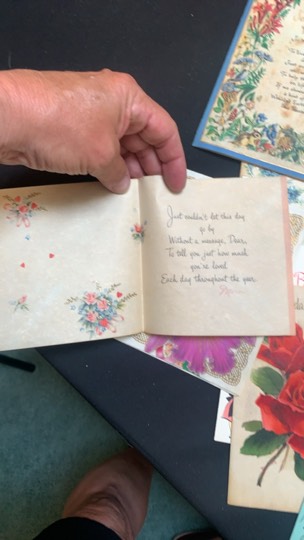 Just couldn't let this day
go by
Without a message, Dear,
To tell you just how much
you're loved
Each day throughout the year.